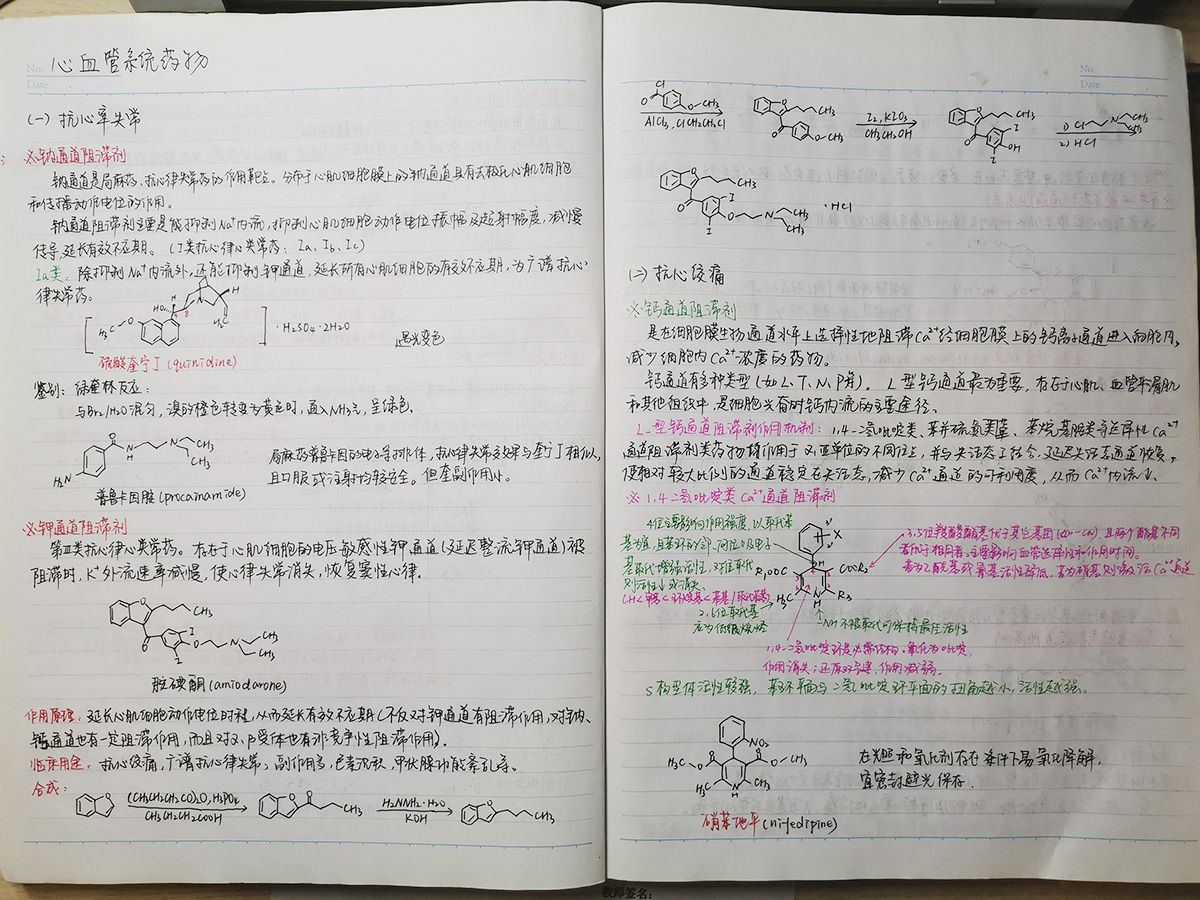 No. 心血管系统药物
Date
(一) 抗心率失常
※钠通道阻滞剂
钠通道是局麻药、抗心律失常药的作用靶点。分布于心肌细胞膜上的钠通道具有去极化心肌细胞
和传播动作电位的作用。
钠通道阻滞剂主要是能抑制Na⁺内流,抑制心肌细胞动作电位振幅及超射幅度,减慢
传导,延长有效不应期。(I类抗心律失常药:Ia、Ib、Ic)
Ia类:除抑制Na⁺内流外,还能抑制钾通道,延长所有心肌细胞的有效不应期,为广谱抗心
律失常药。
HO H H
H₃C-O N CH₂
·H₂SO₄·2H₂O 遇光变色
硫酸奎宁丁(quinidine)
鉴别:绿奎林反应:
与Br₂/H₂O混匀,溴的橙色转变为黄色时,通入NH₃,呈绿色.
O N H N CH₃ CH₃
H₂N
局麻药普鲁卡因的电子等排体,抗心律失常效果与奎宁丁相似,
且口服或注射均较安全。但奎副作用小。
普鲁卡因胺(procainamide)
※钾通道阻滞剂
第Ⅲ类抗心律失常药。存在于心肌细胞的电压敏感性钾通道(延迟整流钾通道)被
阻滞时,K⁺外流速率减慢,使心律失常消失,恢复窦性心律.
O CH₃ I O I O N CH₃ CH₃
胺碘酮(amiodarone)
作用原理:延长心肌细胞动作电位时程,从而延长有效不应期(不仅对钾通道有阻滞作用,对钠、
钙通道也有一定阻滞作用,而且对α、β受体也有非竞争性阻滞作用).
临床用途:抗心绞痛,广谱抗心律失常,副作用多,色素沉积,甲状腺功能紊乱等。
合成:
(CH₃CH₂CH₂CO)₂O,H₃PO₄
CH₃CH₂CH₂COOH
O O CH₃
H₂NNH₂·H₂O
KOH
O CH₃
No.
Date
O Cl O-CH₃
AlCl₃,ClCH₂CH₂Cl
O CH₃ O O-CH₃
I₂,KIO₃
CH₃CH₂OH
O CH₃ O I OH I
1) Cl N CH₃ CH₃
2) HCl
O CH₃ O I O N CH₃ CH₃ I ·HCl
(二) 抗心绞痛
※钙通道阻滞剂
是在细胞膜生物通道水平上选择性地阻滞Ca²⁺经细胞膜上的钙离子通道进入细胞内,
减少细胞内Ca²⁺浓度的药物。
钙通道有多种类型(如L、T、N、P等)。L型钙通道最为重要,存在于心肌、血管平滑肌
和其他组织中,是细胞兴奋时钙内流的主要途径。
L-型钙通道阻滞剂作用机制:1,4-二氢吡啶类、苯并硫氮䓬类、苯烷基胺类等选择性Ca²⁺
通道阻滞剂类药物均作用于α₁亚单位的不同位点,并与失活态结合,延迟失活态通道恢复,
使相对较大比例的通道稳定在失活态,减少Ca²⁺通道的可利用度,从而Ca²⁺内流↓.
※1,4二氢吡啶类Ca²⁺通道阻滞剂
4位主要影响作用强度,以取代苯
基为宜,且苯环的邻、间位吸电子
基取代增强活性,对位取代
则活性↓或消失.
CH₃<甲基<环烷基<苯基/取代苯基
2,6位取代基
应为低级烷烃
X R₁OOC COOR₂ H₃C N H R₃
3,5位羧酸酯基优于其它基团(如-CN),且两个酯基不同
者优于相同者,主要影响血管选择性和作用时间.
若为乙酰基或氰基活性降低,若为硝基则激活Ca²⁺通道
-NH不被取代可保持最佳活性
1,4-二氢吡啶环是必需结构,氧化为吡啶,
作用消失;还原双键,作用减弱.
S构型体活性较强,苯环平面与二氢吡啶环平面的扭角越小,活性越强。
O O NO₂
H₃C-O O-CH₃
H₃C N H CH₃
在光照和氧化剂存在条件下易氧化降解,
宜密封避光保存.
硝苯地平(nifedipine)
教师签名: